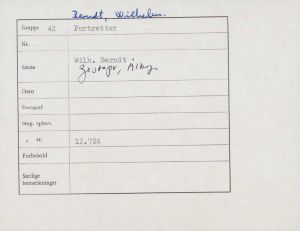 Berndt, Wilhelm.
Gruppe 42 Portretter
Nr.
Emne Wilh. Berndt
Dato
Fotograf
Orig. oppbev.
" nr. 12.724
Forbehold
Særlige
bemerkninger